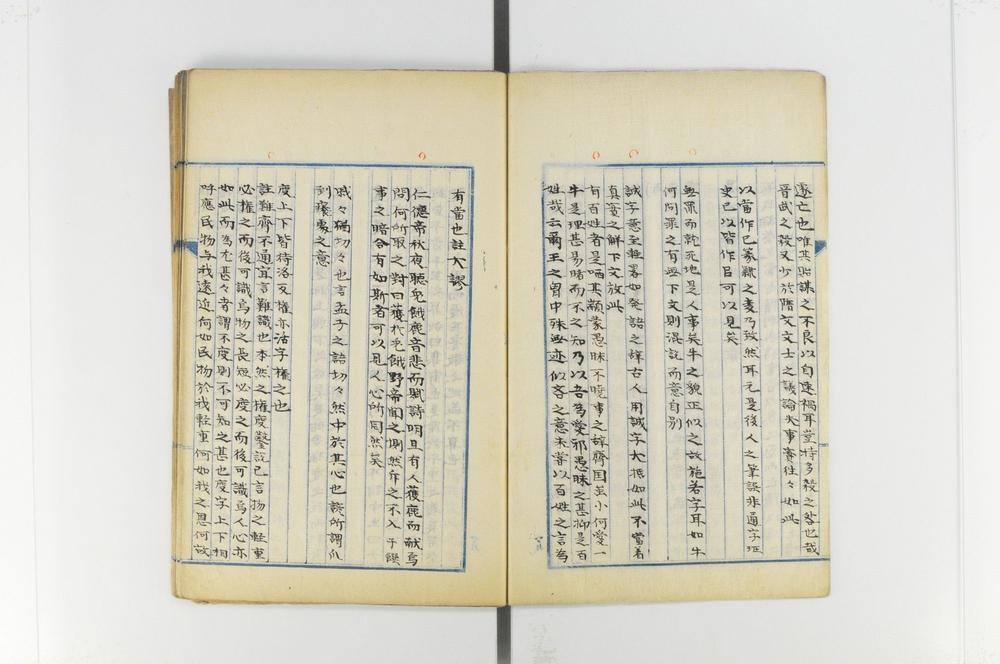 遂亡也唯其貽謀之不良以自速禍耳豈特多殺之咎也哉
晉武之殺又少於隋文文士之議論失事實往々如此
以當作已篆隷之変乃致然耳元是後人之筆誤非通字班
史已以皆作㠯可以見矣
無罪而就死地是人事矣牛之貌正似之故著若字耳如牛
何問罪之有無下文則混説而意自別
誠字意至軽畧如発語之辞古人用誠字大抵如此不當着
真実之解下文放此
有百姓者是哂其顓蒙愚昧不曉事之辞齊國虽小何愛一
牛是理甚易暁而不之知乃以吾為愛邪愚昧之甚抑是百
姓哉云爾王之胷中殊無迹似吝之意未嘗以百姓之言為
有當也註大謬
仁德帝秋夜聽兎餓鹿音悲而賦詩明旦有人獲鹿而献焉
問何所取之對曰獲於兎餓野帝聞之惻然斥之不入于饌
事之暗合有如斯者可以見人心所同然矣
戚々猶切々也言孟子之語切々然中於其心也諺所謂爪
到癢處之意
度上下皆待洛反權亦活字權之也
註難齊不通宜言難識也本然之權度鑿説已言物之軽重
必權之而後可識焉物之長短必度之而後可識焉人心亦
如此而為尤甚々者謂不度則不可知之甚也度字上下相
呼應民物与我遠近何如民物於我軽重何如我之恩何故